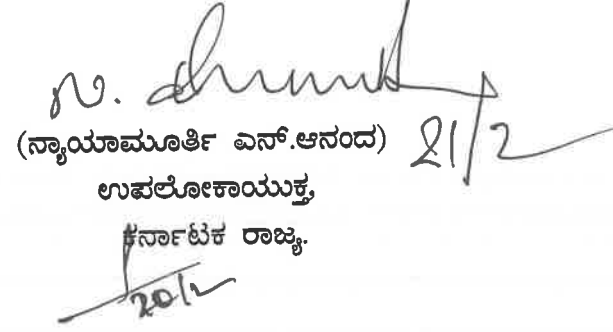 (ನ್ಯಾಯಾಮೂರ್ತಿ ಎನ್.ಆನಂದ) 21/2
ಉಪಲೋಕಾಯುಕ್ತ,
ಕರ್ನಾಟಕ ರಾಜ್ಯ.
20/2